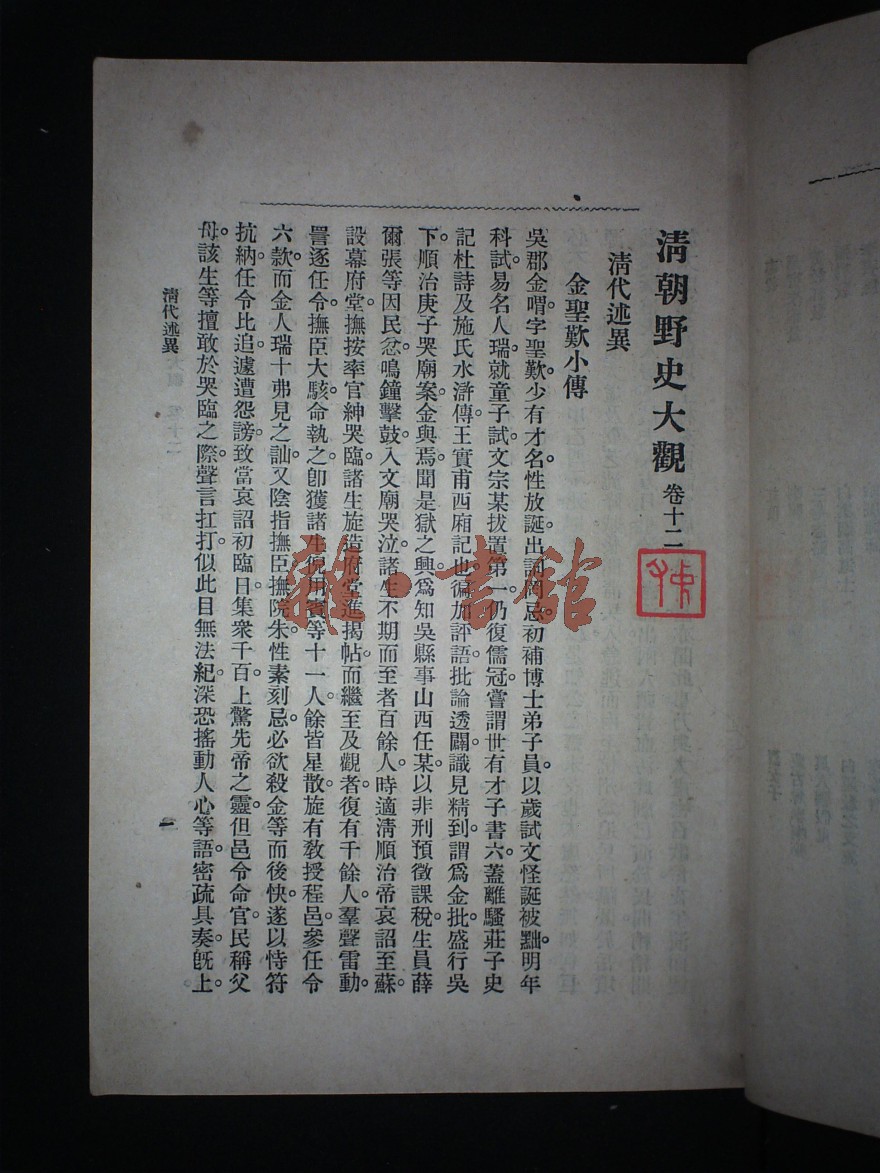 清朝野史大觀 卷十二
清代述異
金聖歎小傳
吳郡金喟字聖歎。少有才名。性放誕。出詞忌。初補博士弟子員。以歲試文怪誕被黜。明年
科試。易名人瑞。就童子試。文宗某拔置第一。仍復儒冠。嘗謂世有才子書六。蓋離騷莊子史
記杜詩及施氏水滸傳。王實甫西廂記也。徧加評語。批論透闢。識見精到。謂爲金批。盛行吳
下。順治庚子哭廟案。金與焉。聞是獄之興。爲知吳縣事山西任某。以非刑預徵課稅。生員薛
爾張等因民忿。鳴鐘擊鼓。入文廟哭泣。諸生不期而至者百餘人。時適淸順治帝哀詔至蘇。
設幕府堂。撫按率官紳哭臨。諸生旋造府堂進揭帖。而繼至及觀者。復有千餘人。羣聲雷動。
詈逐任令。撫臣大駭。命執之。卽獲諸生倪用賓等十一人。餘皆星散。旋有敎授程邑參任令
六款。而金人瑞十弗見之訕。又陰指撫臣。撫院朱性素刻忌。必欲殺金等而後快。遂以恃符
抗納。任令比追。遽遭怨謗。致當哀詔初臨日。集衆千百。上驚先帝之靈。但邑令命官。民稱父
母。該生等擅敢於哭臨之際。聲言扛打。似此目無法紀。深恐搖動人心等語。密疏具奏。旣上。
清代述異
一
雜·書館